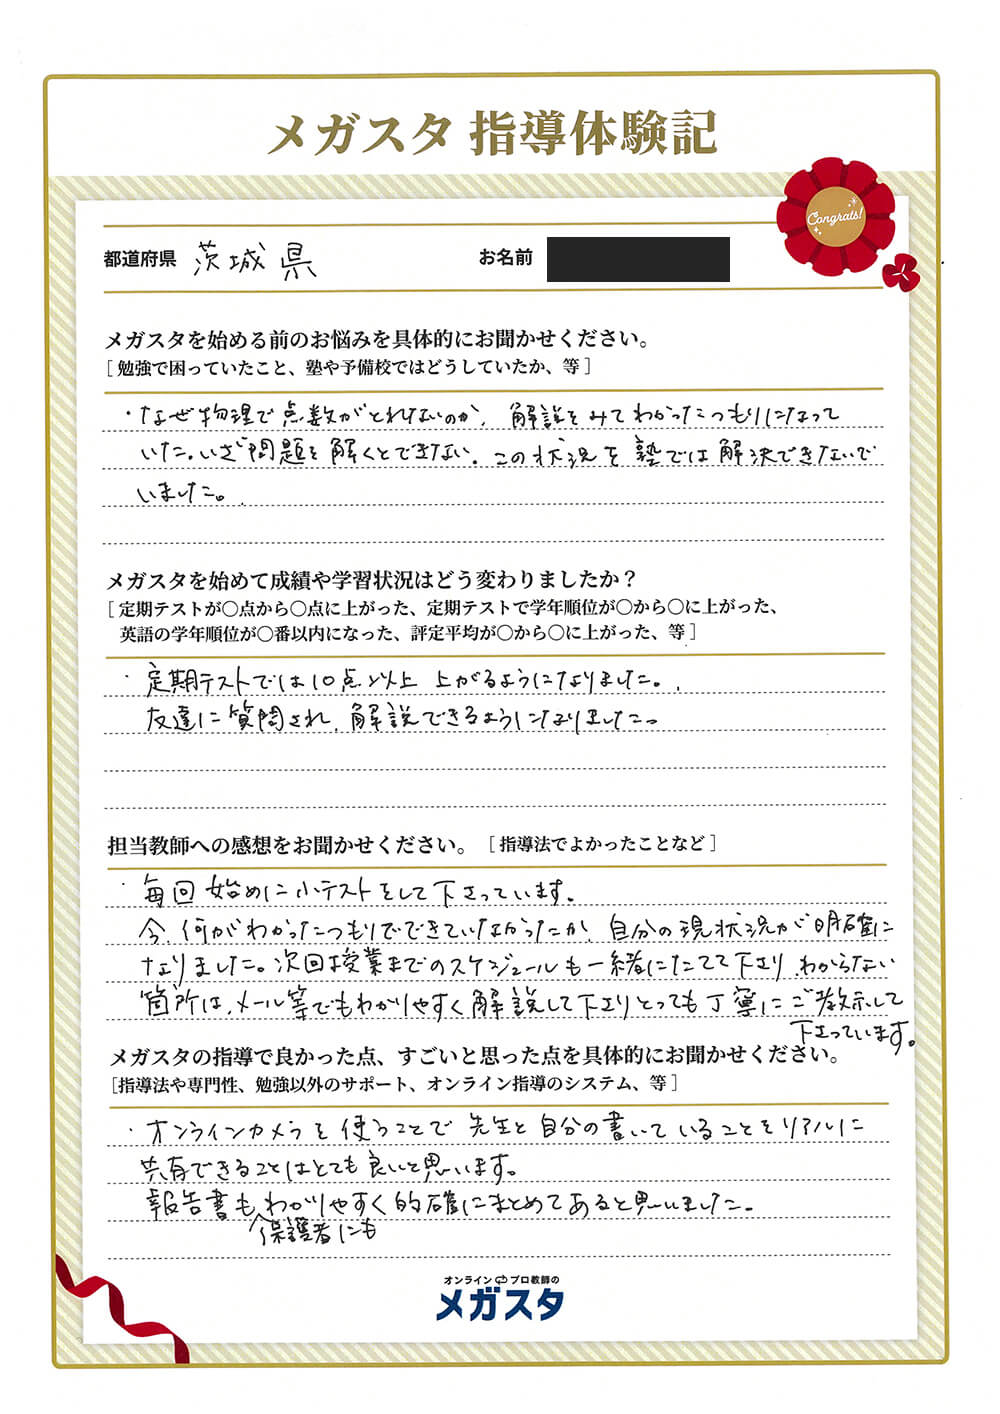 メガスタ 指導体験記
Congrats!
都道府県 茨城県 お名前
メガスタを始める前のお悩みを具体的にお聞かせください。
[ 勉強で困っていたこと、塾や予備校ではどうしていたか、等 ]
・なぜ物理で点数がとれないのか、解説をみてわかったつもりになって
いた。いざ問題を解くとできない。この状況を塾では解決できないで
いました。
メガスタを始めて成績や学習状況はどう変わりましたか？
[ 定期テストが〇点から〇点に上がった、定期テストで学年順位が〇から〇に上がった、
英語の学年順位が〇番以内になった、評定平均が〇から〇に上がった、等 ]
・定期テストでは10点以上 上がるようになりました。
友達に質問され、解説できるようになりました。
担当教師への感想をお聞かせください。 [ 指導法でよかったことなど ]
・毎回始めに小テストをして下さっています。
今、何がわかったつもりでできていなかったか、自分の現状況が明確に
なりました。次回授業までのスケジュールも一緒にたてて下さり、わからない
箇所は、メール等でもわかりやすく解説して下さりとっても丁寧にご教示して
下さっています。
メガスタの指導で良かった点、すごいと思った点を具体的にお聞かせください。
[指導法や専門性、勉強以外のサポート、オンライン指導のシステム、等 ]
・オンラインカメラを使うことで先生と自分の書いていることをリアルに
共有できることはとても良いと思います。
報告書もわかりやすく的確にまとめてあると思いました。
保護者にも
オンラインプロ教師の
メガスタ